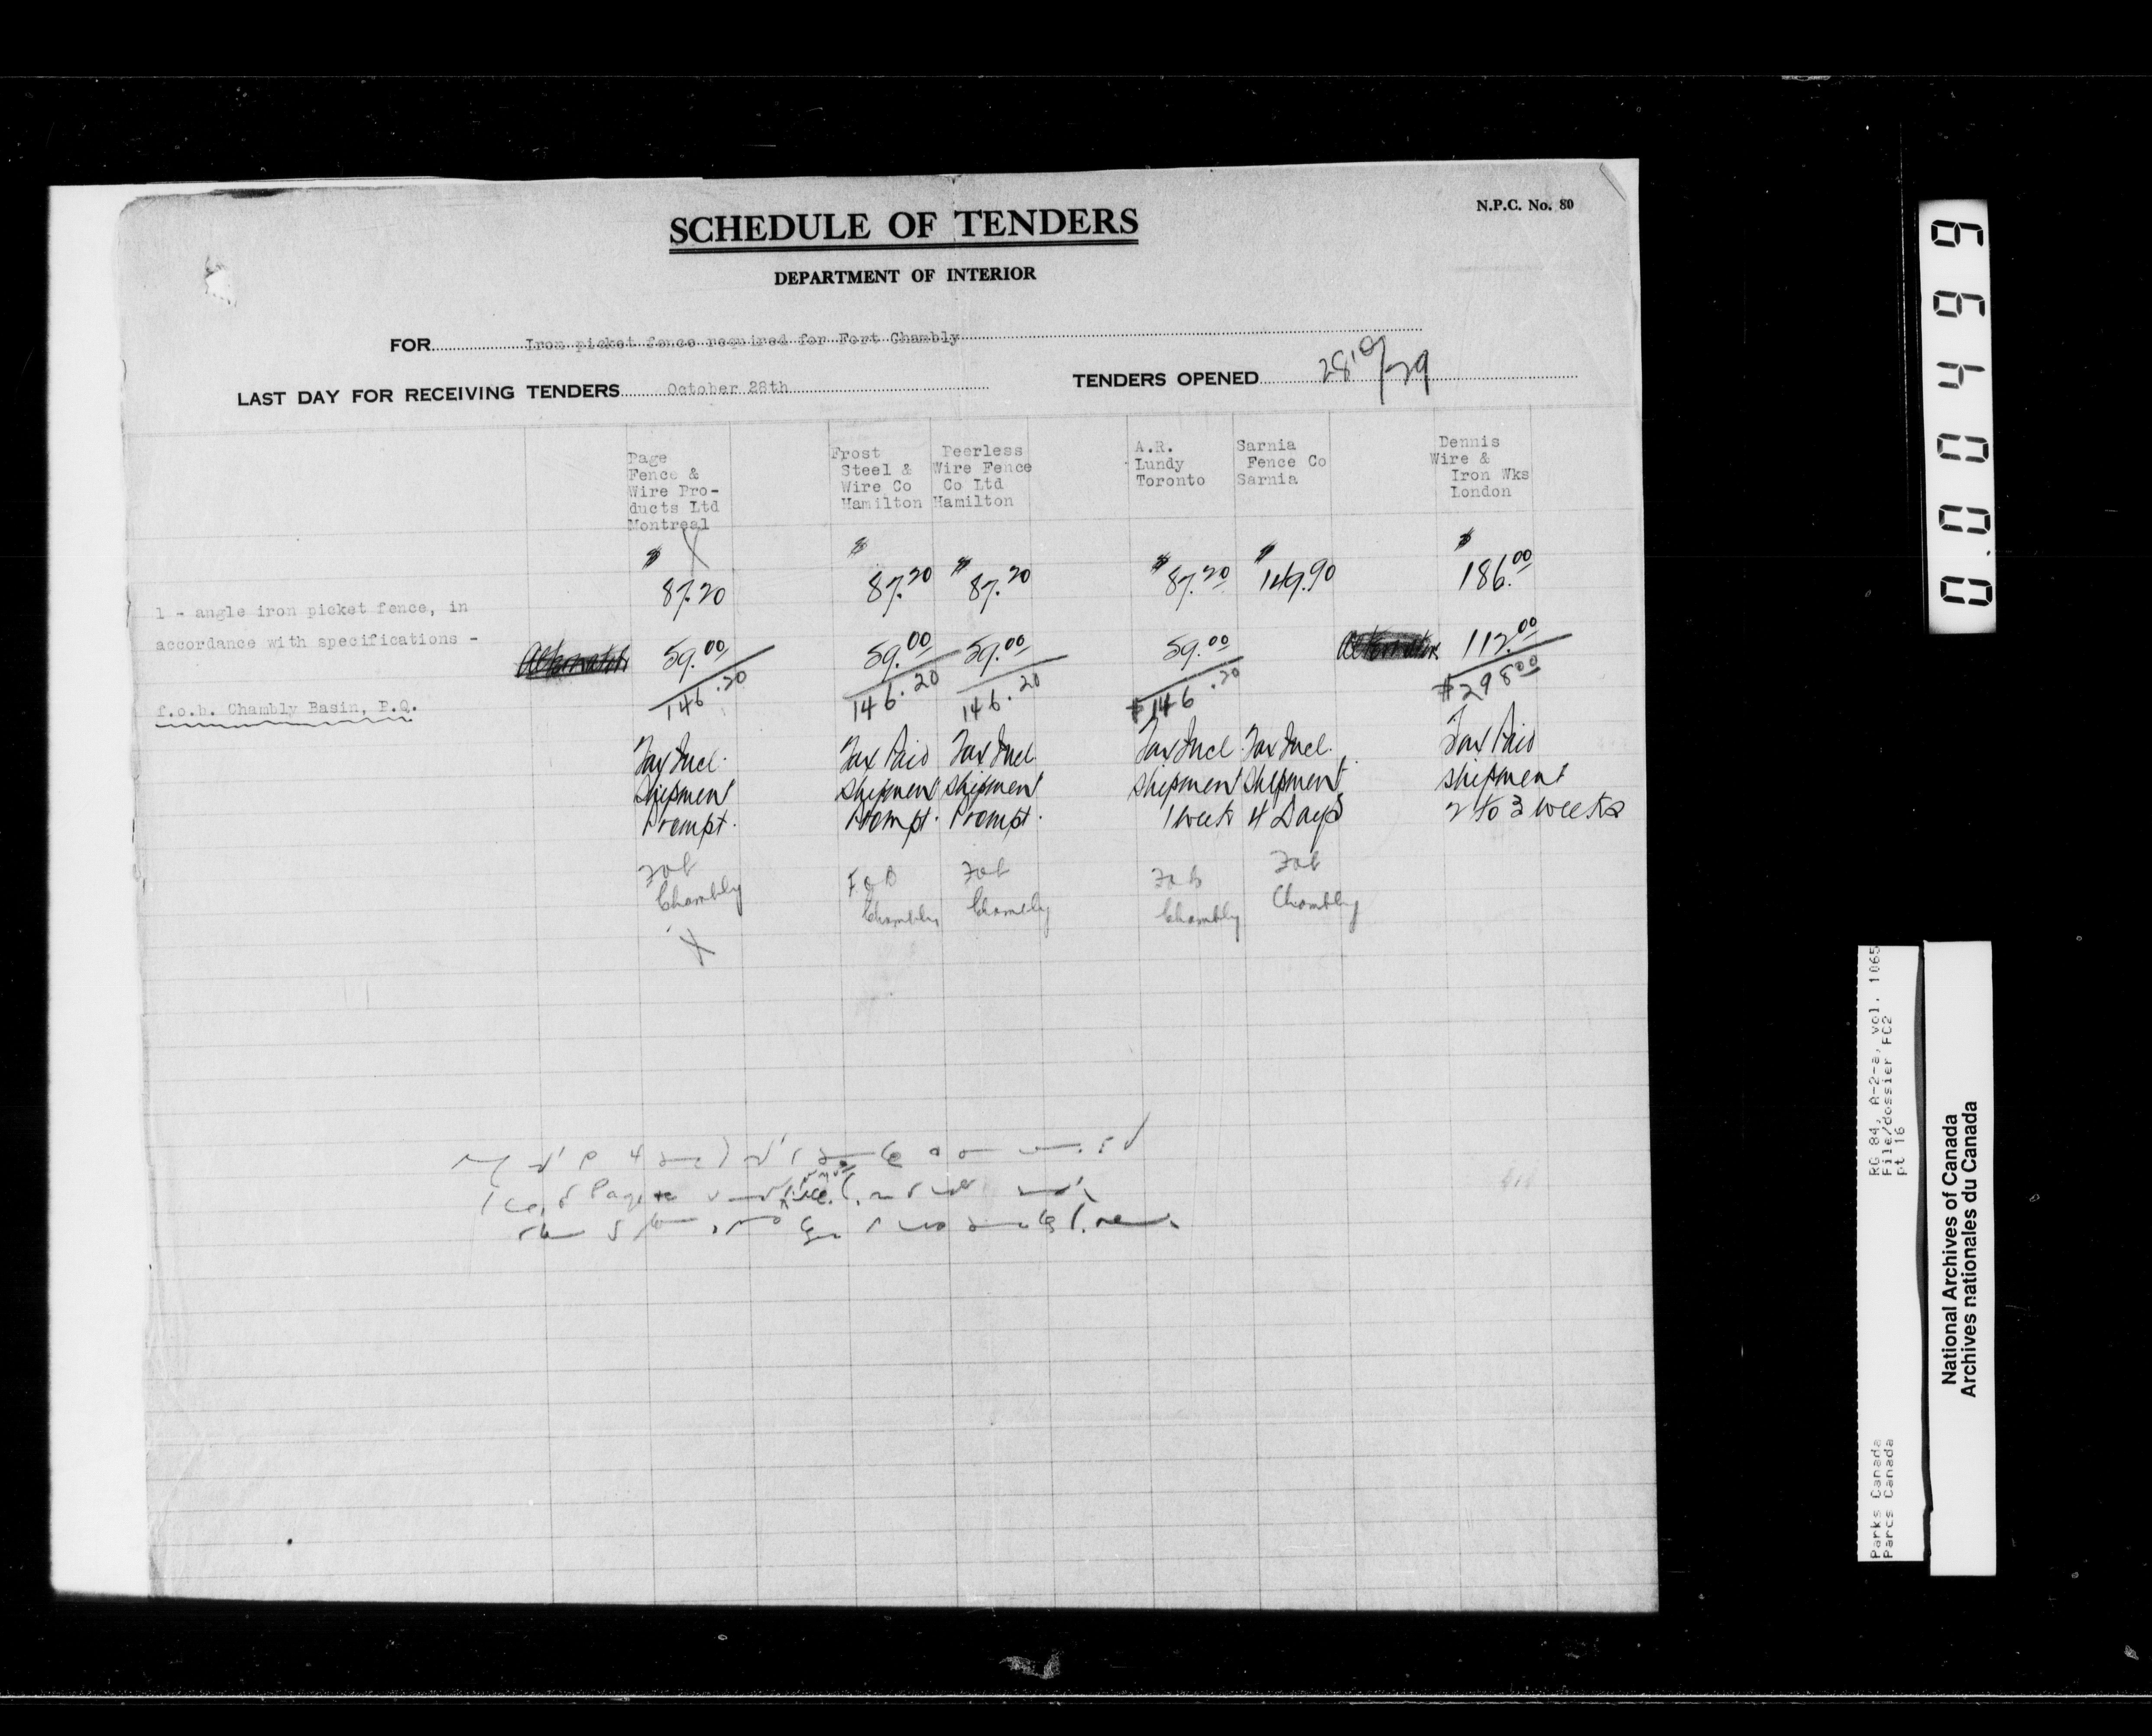 N.P.C. No. 80
SCHEDULE OF TENDERS
DEPARTMENT OF INTERIOR
FOR Iron picket fence required for Fort Chambly
LAST DAY FOR RECEIVING TENDERS October 28th TENDERS OPENED 28/10/29
Page
Fence &
Wire Pro-
ducts Ltd
Montreal
Frost
Steel &
Wire Co
Hamilton
Peerless
Wire Fence
Co Ltd
Hamilton
A.R.
Lundy
Toronto
Sarnia
Fence Co
Sarnia
Dennis
Wire &
Iron Wks
London
X
$ $ $ $ $ $
87.20 87.20 87.20 87.20 149.90 186.00
1 - angle iron picket fence, in
accordance with specifications -
59.00 59.00 59.00 59.00 112.00
146.20 146.20 146.20 $146.20 $298.00
f.o.b. Chambly Basin, P.Q.
Tax Incl. Tax Paid Tax Incl. Tax Incl. Tax Incl. Tax Paid
Shipment Shipment Shipment Shipment Shipment Shipment
Prompt. Prompt. Prompt. 1 week 4 Days 2 to 3 weeks
Fob FOB Fob Fob Fob
Chambly Chambly Chambly Chambly Chambly
X
Page
0.00499
RG 84, A-2-a, vol. 1065
File/dossier FC2
pt 16
Parks Canada
Parcs Canada
National Archives of Canada
Archives nationales du Canada